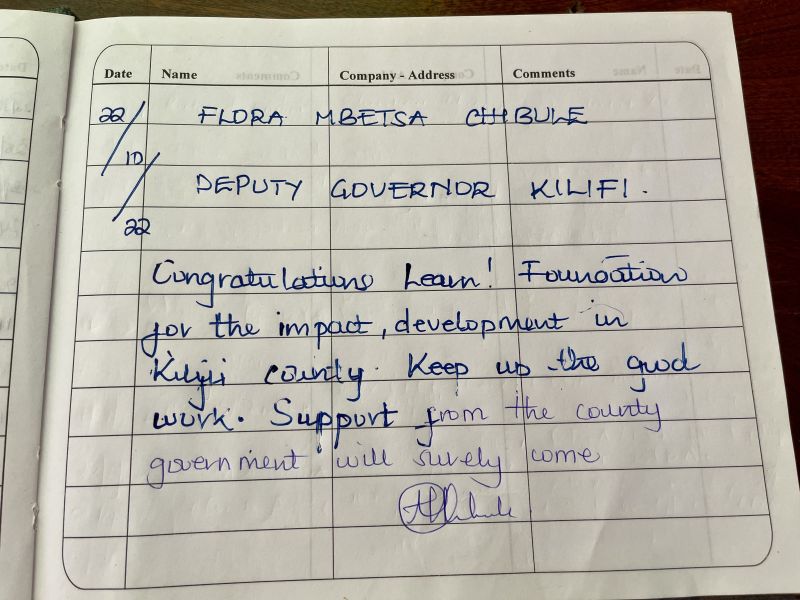 Date Name Company - Address Comments
22/10/22 FLORA MBETSA CHIBULE
DEPUTY GOVERNOR KILIFI.
Congratulations Learn! Foundation
for the impact, development in
Kilifi county. Keep up the good
work. Support from the county
government will surely come